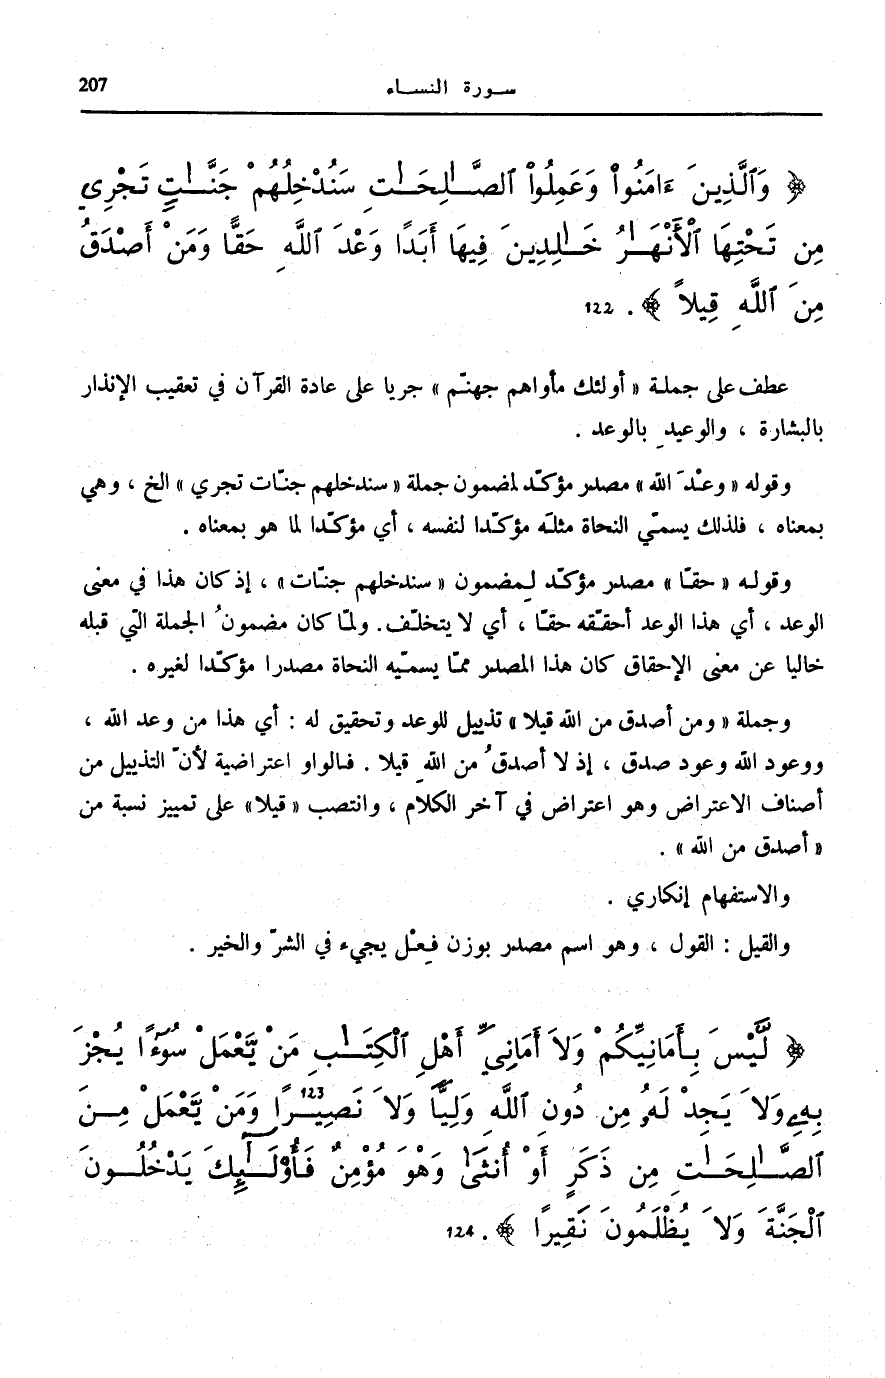 207 سورة النساء
﴿ وَٱلَّذِينَ ءَامَنُواْ وَعَمِلُواْ ٱلصَّـٰلِحَـٰتِ سَنُدْخِلُهُمْ جَنَّـٰتٍ تَجْرِي
مِن تَحْتِهَا ٱلْأَنْهَـٰرُ خَـٰلِدِينَ فِيهَا أَبَدًا وَعْدَ ٱللَّهِ حَقًّا وَمَنْ أَصْدَقُ
مِنَ ٱللَّهِ قِيلاً ﴾ . 122
عطف على جملة « أولئك مأواهم جهنّم » جريا على عادة القرآن في تعقيب الإنذار
بالبشارة ، والوعيد بالوعد .
وقوله « وعْدَ الله » مصدر مؤكّد لمضمون جملة « سندخلهم جنّات تجري » الخ ، وهي
بمعناه ، فلذلك يسمّي النحاة مثلَه مؤكّدا لنفسه ، أي مؤكّدا لما هو بمعناه .
وقوله « حقّا » مصدر مؤكّد لِمضمون « سندخلهم جنّات » ، إذ كان هذا في معنى
الوعد ، أي هذا الوعد أحقّقه حقّا ، أي لا يتخلّف. ولمّا كان مضمونُ الجملة التي قبله
خاليا عن معنى الإحقاق كان هذا المصدر ممّا يسمّيه النحاة مصدرا مؤكّدا لغيره .
وجملة « ومن أصدق من الله قيلا » تذييل للوعد وتحقيق له : أي هذا من وعد الله ،
ووعود الله وعود صدق ، إذ لا أصدقُ من اللهِ قيلا . فالواو اعتراضية لأنّ التذييل من
أصناف الاعتراض وهو اعتراض في آخر الكلام ، وانتصب « قيلا» على تمييز نسبة من
« أصدق من الله » .
والاستفهام إنكاري .
والقيل : القول ، وهو اسم مصدر بوزن فِعْل يجيء في الشرّ والخير .
﴿ لَّيْسَ بِأَمَانِيِّكُمْ وَلاَ أَمَانِيِّ أَهْلِ ٱلْكِتَـٰبِ مَنْ يَّعْمَلْ سُوٓءًا يُجْزَ
بِهِۦ وَلاَ يَجِدْ لَهُۥ مِن دُونِ ٱللَّهِ وَلِيًّا وَلاَ نَصِيرًا 123 وَمَنْ يَّعْمَلْ مِـنَ
ٱلصَّـٰلِحَـٰتِ مِن ذَكَرٍ أَوْ أُنثَىٰ وَهْوَ مُؤْمِنٌ فَأُوْلَـٰٓئِكَ يَدْخُلُـونَ
ٱلْجَنَّةَ وَلاَ يُظْلَمُونَ نَقِيرًا ﴾ . 124